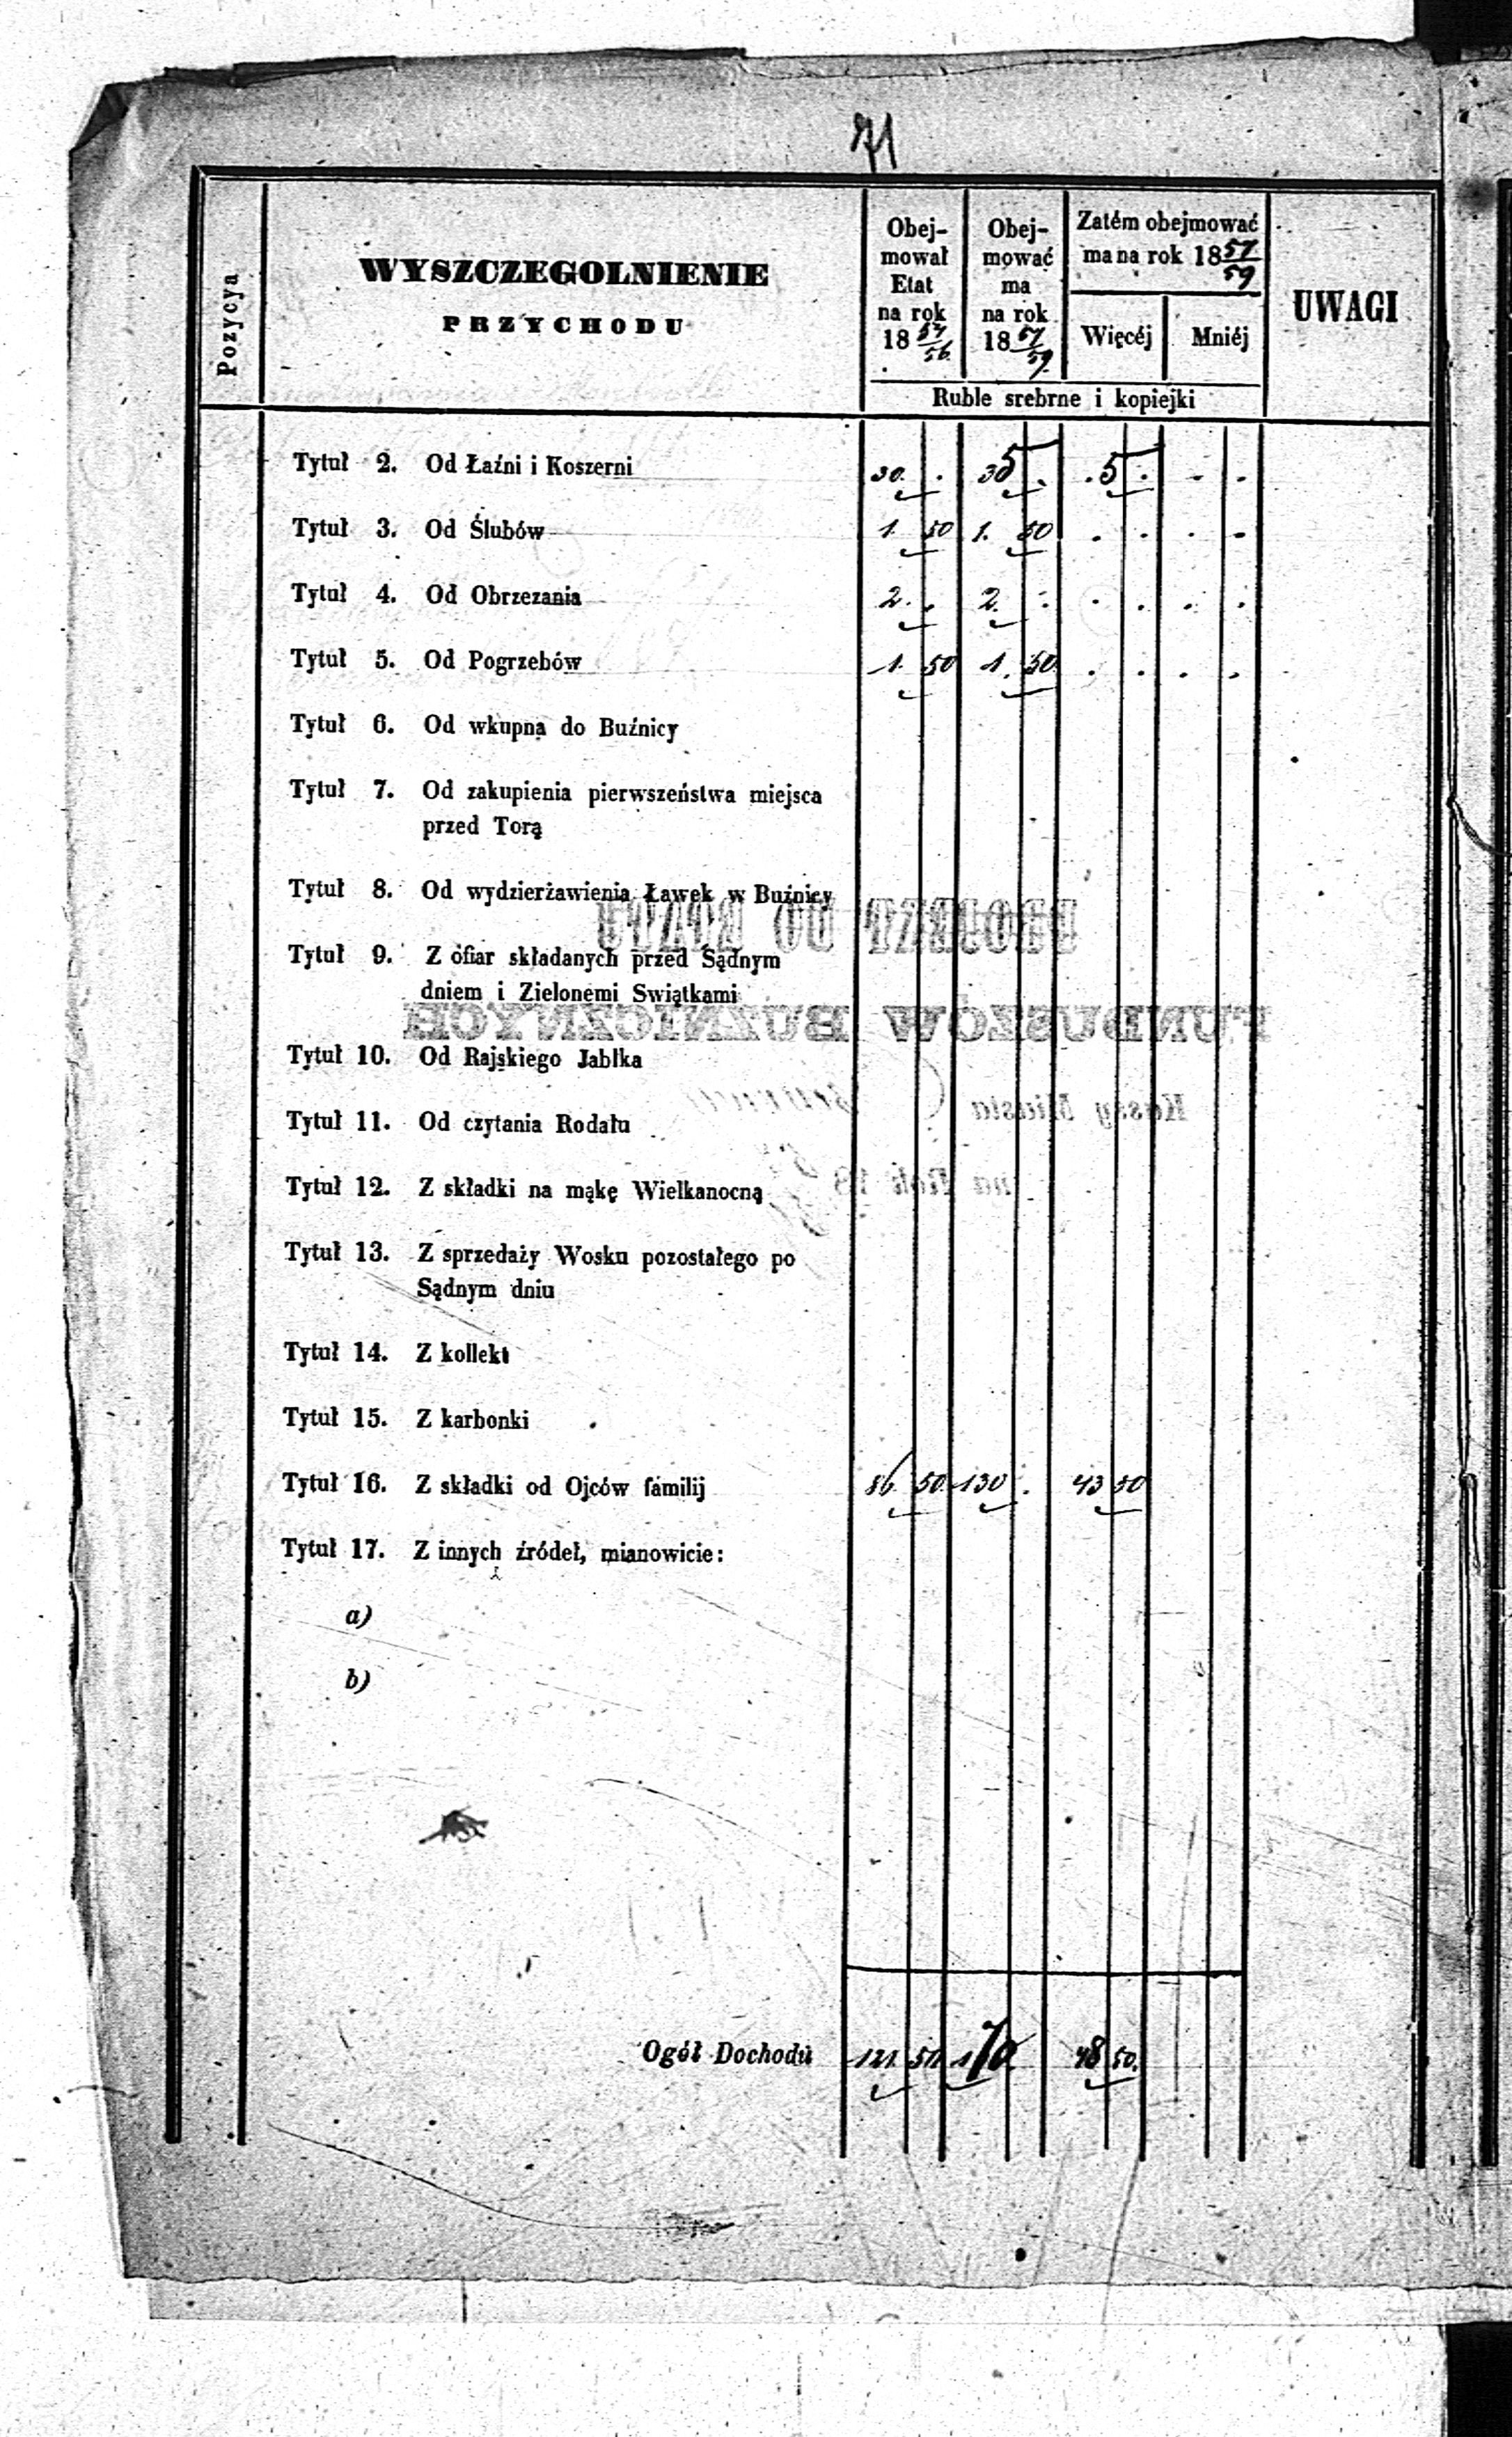 71
Pozycya
WYSZCZEGOLNIENIE
PRZYCHODU
Obej-
mował
Etat
na rok
18 54/56
Obej-
mować
ma
na rok
18 57/59
Zatém obejmować
ma na rok 18 57/59
Więcéj Mniéj
Ruble srebrne i kopiejki
UWAGI
Tytuł 2. Od Łaźni i Koszerni 30. . 35 . . 5 . . .
Tytuł 3. Od Ślubów 1. 50 1. 50 . . . .
Tytuł 4. Od Obrzezania 2. . 2. . . . . .
Tytuł 5. Od Pogrzebów 1. 50 1. 50. . . . .
Tytuł 6. Od wkupna do Buźnicy
Tytuł 7. Od zakupienia pierwszeństwa miejsca
przed Torą
Tytuł 8. Od wydzierżawienia Ławek w Buźnicy
Tytuł 9. Z ofiar składanych przed Sądnym
dniem i Zielonemi Swiątkami
Tytuł 10. Od Rajskiego Jabłka
Tytuł 11. Od czytania Rodału
Tytuł 12. Z składki na mąkę Wielkanocną
Tytuł 13. Z sprzedaży Wosku pozostałego po
Sądnym dniu
Tytuł 14. Z kollekt
Tytuł 15. Z karbonki
Tytuł 16. Z składki od Ojców familij 86. 50. 130 . 43 50
Tytuł 17. Z innych źródeł, mianowicie:
a)
b)
Ogół Dochodu 121. 50 170. 48 50.